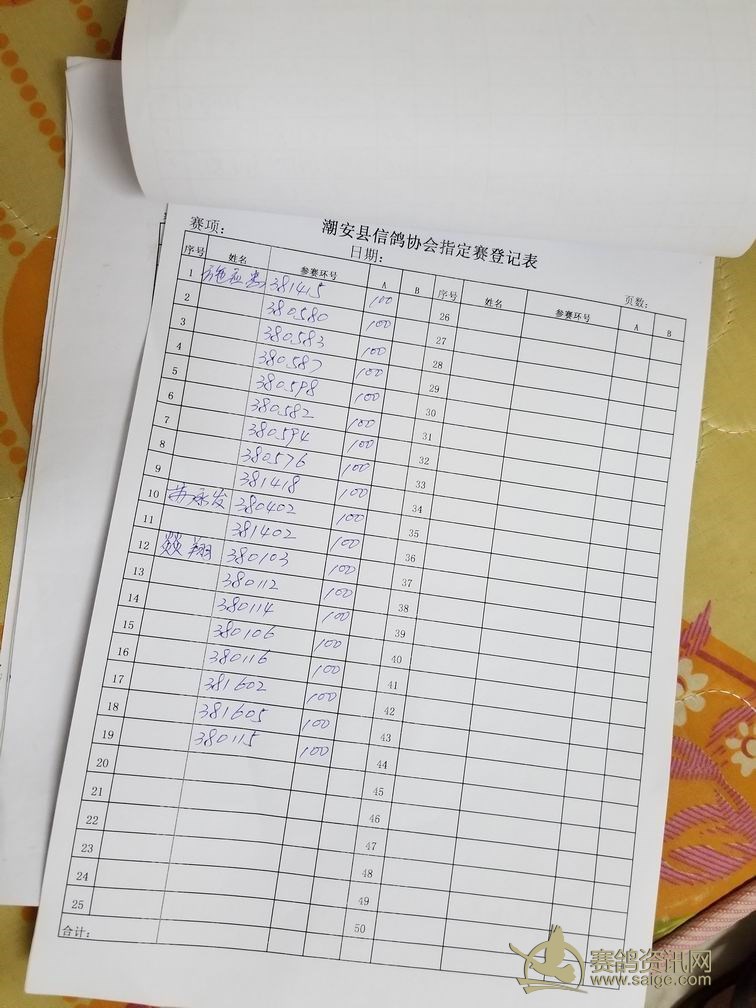 潮安县信鸽协会指定赛登记表
赛项: 日期: 页数:
序号 姓名 参赛环号 A B 序号 姓名 参赛环号 A B
1 381415 100 26
2 380580 100 27
3 380583 100 28
4 380587 100 29
5 380598 100 30
6 380582 100 31
7 380594 100 32
8 380576 100 33
9 381418 100 34
10 苏永发 380402 100 35
11 381402 100 36
12 燚翔 380103 100 37
13 380112 100 38
14 380114 100 39
15 380106 100 40
16 380116 100 41
17 381602 100 42
18 381605 100 43
19 380115 100 44
20 45
21 46
22 47
23 48
24 49
25 50
合计:
赛鸽资讯网
www.saige.com